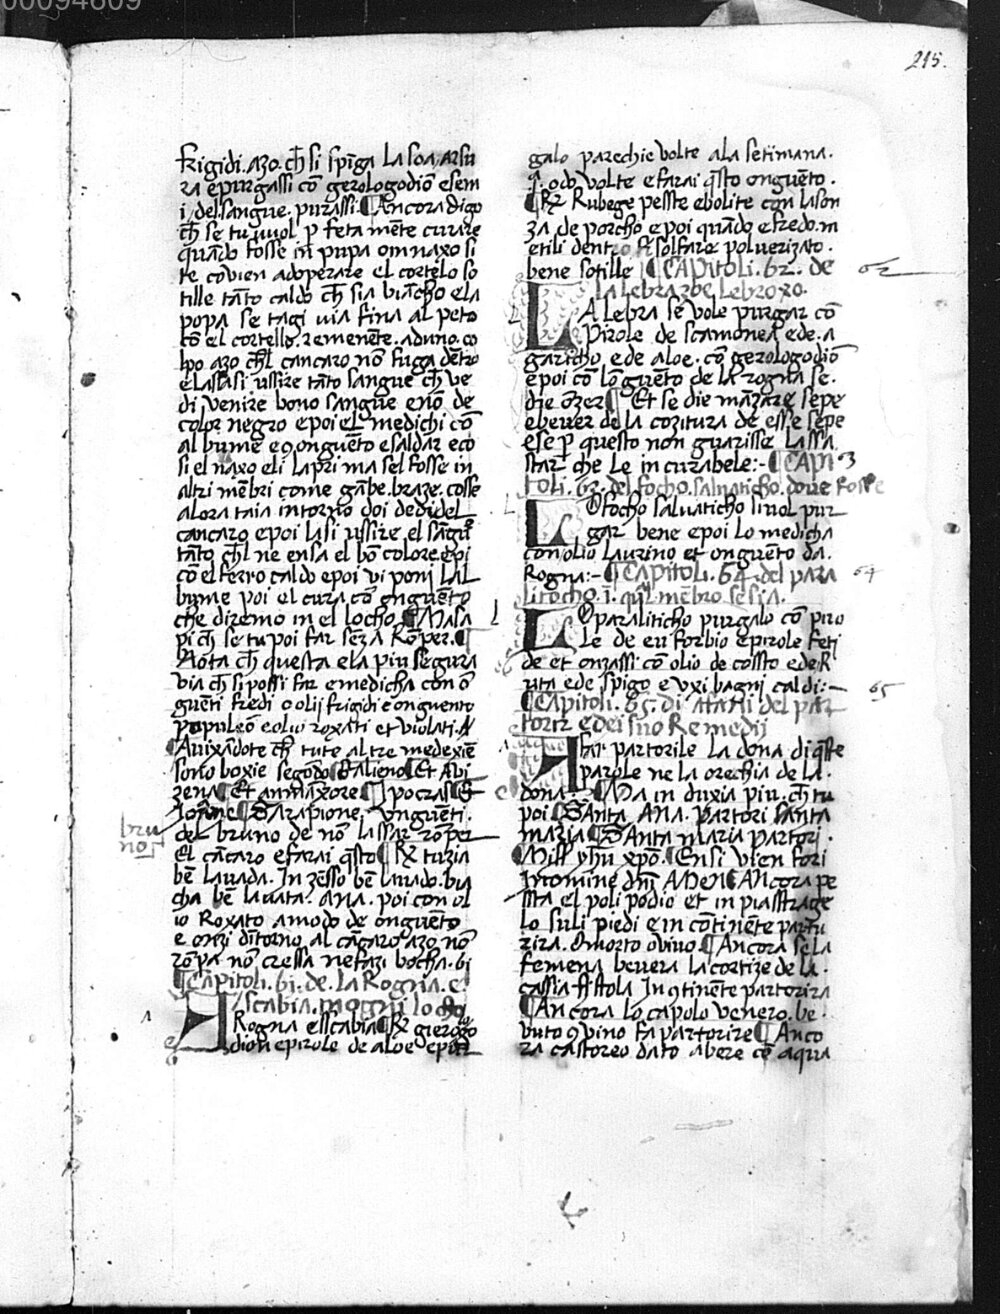 00094609
215.
frigidi. azo. ch̄ si spīga la soa arsu
ra e purgassi cō gerologodiō e sem
i. del sangue. purassi. ¶ Ancora digo
ch̄ se tu vuol p̄ feta mēte curare
quādo fosse in pupa om naxo si
te cōvien adoperare el cortelo so
tille tāto caldo ch̄ sia biācho e la
popa se tagi via fina al peto
cō el cortello. remenēte. aduno. co
lpo azo ch̄l cancaro nō fuga dētro
e lassasi ussire tāto sangue ch̄ ve
di venire bono sangue e nō de
color negro e poi el medichi cō
al bume e onguēto e saldar e co
si el naxo e li la prima sel fosse in
altri mēbri come gābe. braze. cosse
alora taia intorno doi dedi del
cancaro e poi lasi ussire el sāgue
tāto ch̄l ne ensa el bō colore e poi
cō el ferro caldo e poi vi poni lal
bume poi el cura cō onguēto
che diremo in el locho. ¶ Ma sa
pi ch̄ se tu poi far senza rōper. ¶
Nota ch̄ questa e la piu segura
via ch̄ si possi far e medicha con o
guēti fredi o olij frigidi e onguento
populeō e olio roxati et violati. ¶
Avixādote ch̄ tute altre medexiē
sono boxie segōdo ¶ Galieno ¶ Et Avi
zena ¶ Et anmāxore ¶ ypocras ¶ E
Johāne ¶ Sarapione. Unguēti.
del bruno de nō lassar rōper
bru
no
el cācaro e farai q̄sto ¶ Rx tuzia
bē lavada. In zesso bē lavado. bia
cha bē lavata. Ana. poi con ol
io Roxato a modo de onguēto
e onzi dītorno al cācaro azo nō
rōpa nō cressa ne fazi bocha. 61
¶ Capitoli. 61. de. la Rogna. e
scabia. in ogni locho
A Rogna e scabia ¶ Rx gierologo
dion e pirole de aloe e poi
galo parechie volte ala setimana.
4. o do volte e farai q̄sto onguēto.
¶ Rx Rubege pesste e bolite con la son
za de porcho e poi quādo e fredo. m
etili dentro si solfare polverizato.
bene sotille ¶ Capitoli. 62. de
62
la lebra zoe lebroxo.
LA lebra se vole purgar cō
pirole de scamonea e de. a
garicho. e de aloe. cō gerologodiō
e poi cō lo guēto de la rogna se.
die ōzer ¶ Et se die māzare sepe
e bever de la cozitura de esse sepe
e se p̄ questo non guarisse lassa
star che le in curabele:- ¶ Capi
63
toli. 63. del focho. salvaticho. dove fosse
LO focho salvaticho si vol pur
gar bene e poi lo medicha
con olio laurino et onguēto da.
Rogna:- ¶ Capitoli. 64. del para
64
liticho. i. qual mēbro se sia.
LO paraliticho purgalo cō piro
le de euforbio e pirole feti
de et onzassi cō olio de cossto e de R
uta e de spigo e uxi bagni caldi:-
65
¶ Capitoli. 65. di a far del par
torir e dei suo Remedij
A far partorile la dona di q̄ste
parole ne la orechia de la.
dona: ¶ Ma in duxia piu. ch̄ tu
poi ¶ Santa Ana. partori santa
maria ¶ Santa maria partori.
¶ Miss yh̄u xpō. ¶ Ensi vien fori
In nomine dnī Amen ¶ Ancora pe
ssta el polipodio et in piasstrage
lo suli piedi e in cōtinēte partu
rira. o morto o vivo ¶ Ancora se la
femena bevera la cortize de la.
cassia fistola in 9tinēte partorira
¶ Ancora lo capolo venero. be
vuto 9 vino fa partorire ¶ Anco
ra castoreo dato a bere cō aqua